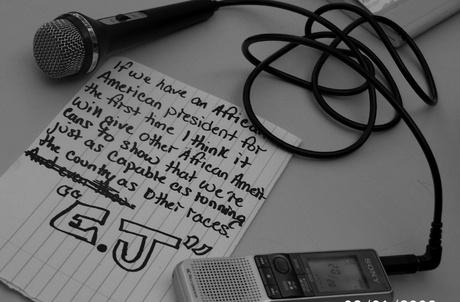 If we have an African
American president for
the first time I think it
will give other African Ameri
cans to show that we're
just as capable as running
the country as other races.
"E.J"
SONY